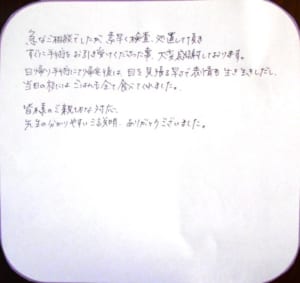 急なご相談でしたが、素早く検査、処置して頂き
すぐに手術をお引き受けくださった事、大変感謝しております。
日帰り手術にて帰宅後は、目を見張る早さで表情も生き生きしだし、
当日の夜にはごはんも全て食べてくれました。
皆様のご親切な対応、
先生の分かりやすいご説明、ありがとうございました。